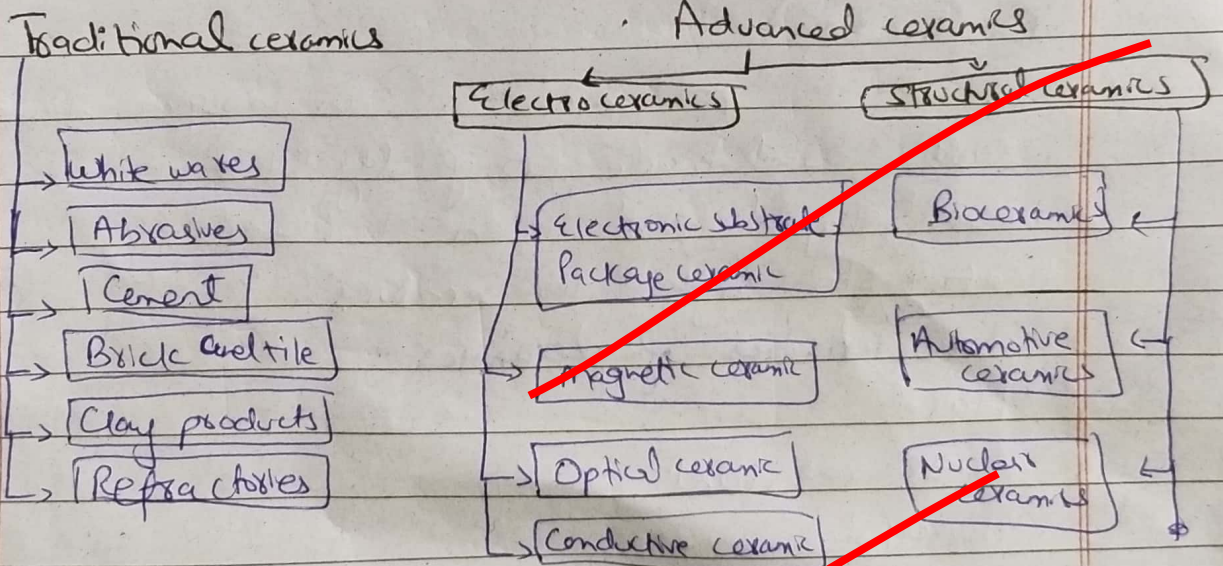 Traditional ceramics
White wares
Abrasives
Cement
Brick and tile
Clay products
Refractories
Advanced ceramics
Electroceramics
Electronic substrate
Package ceramic
Magnetic ceramic
Optical ceramic
Conductive ceramic
Structural ceramics
Bioceramics
Automotive
ceramics
Nuclear
ceramics